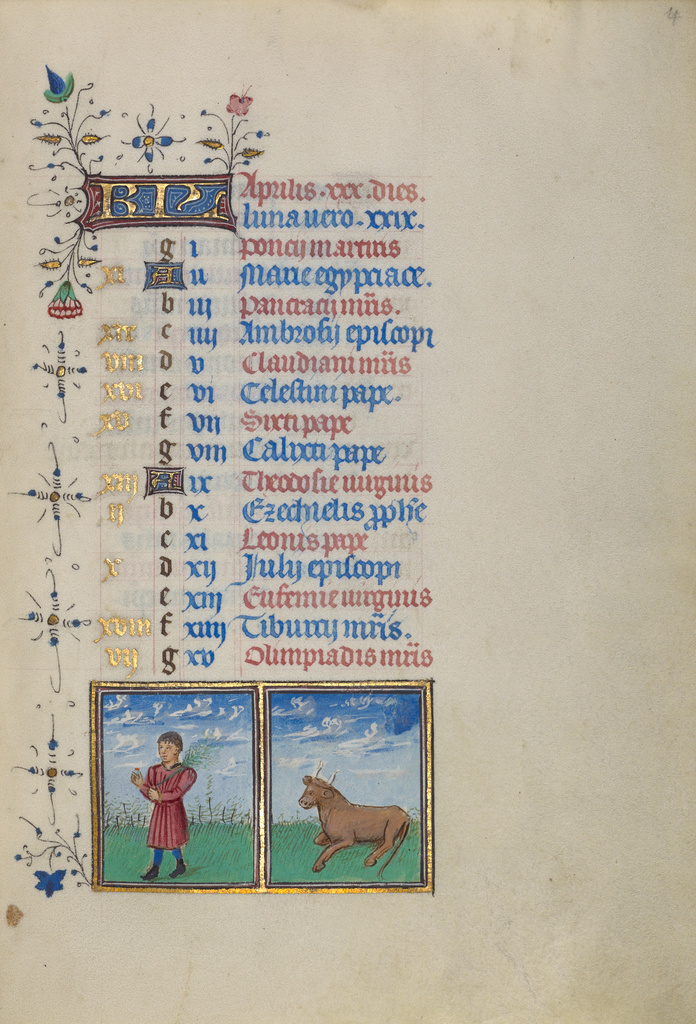 4
KL Aprilis · xxx · dies.
luna vero · xxix.
g i poncij martiris
xi A ii Marie egypciace.
b iij pancracij mr̃is.
xix c iiij Ambrosij episcopi
viii d v Claudiani mr̃is
xvi e vi Celestini pape.
xv f vii Sixti pape
g viii Calixti pape
xiij A ix Theodosie virginis
ij b x Ezechielis
c xi Leonis pape
x d xij Julij episcopi
e xiij Eufemie virginis
xviii f xiiij Tiburcij mr̃is.
vij g xv Olimpiadis mr̃is